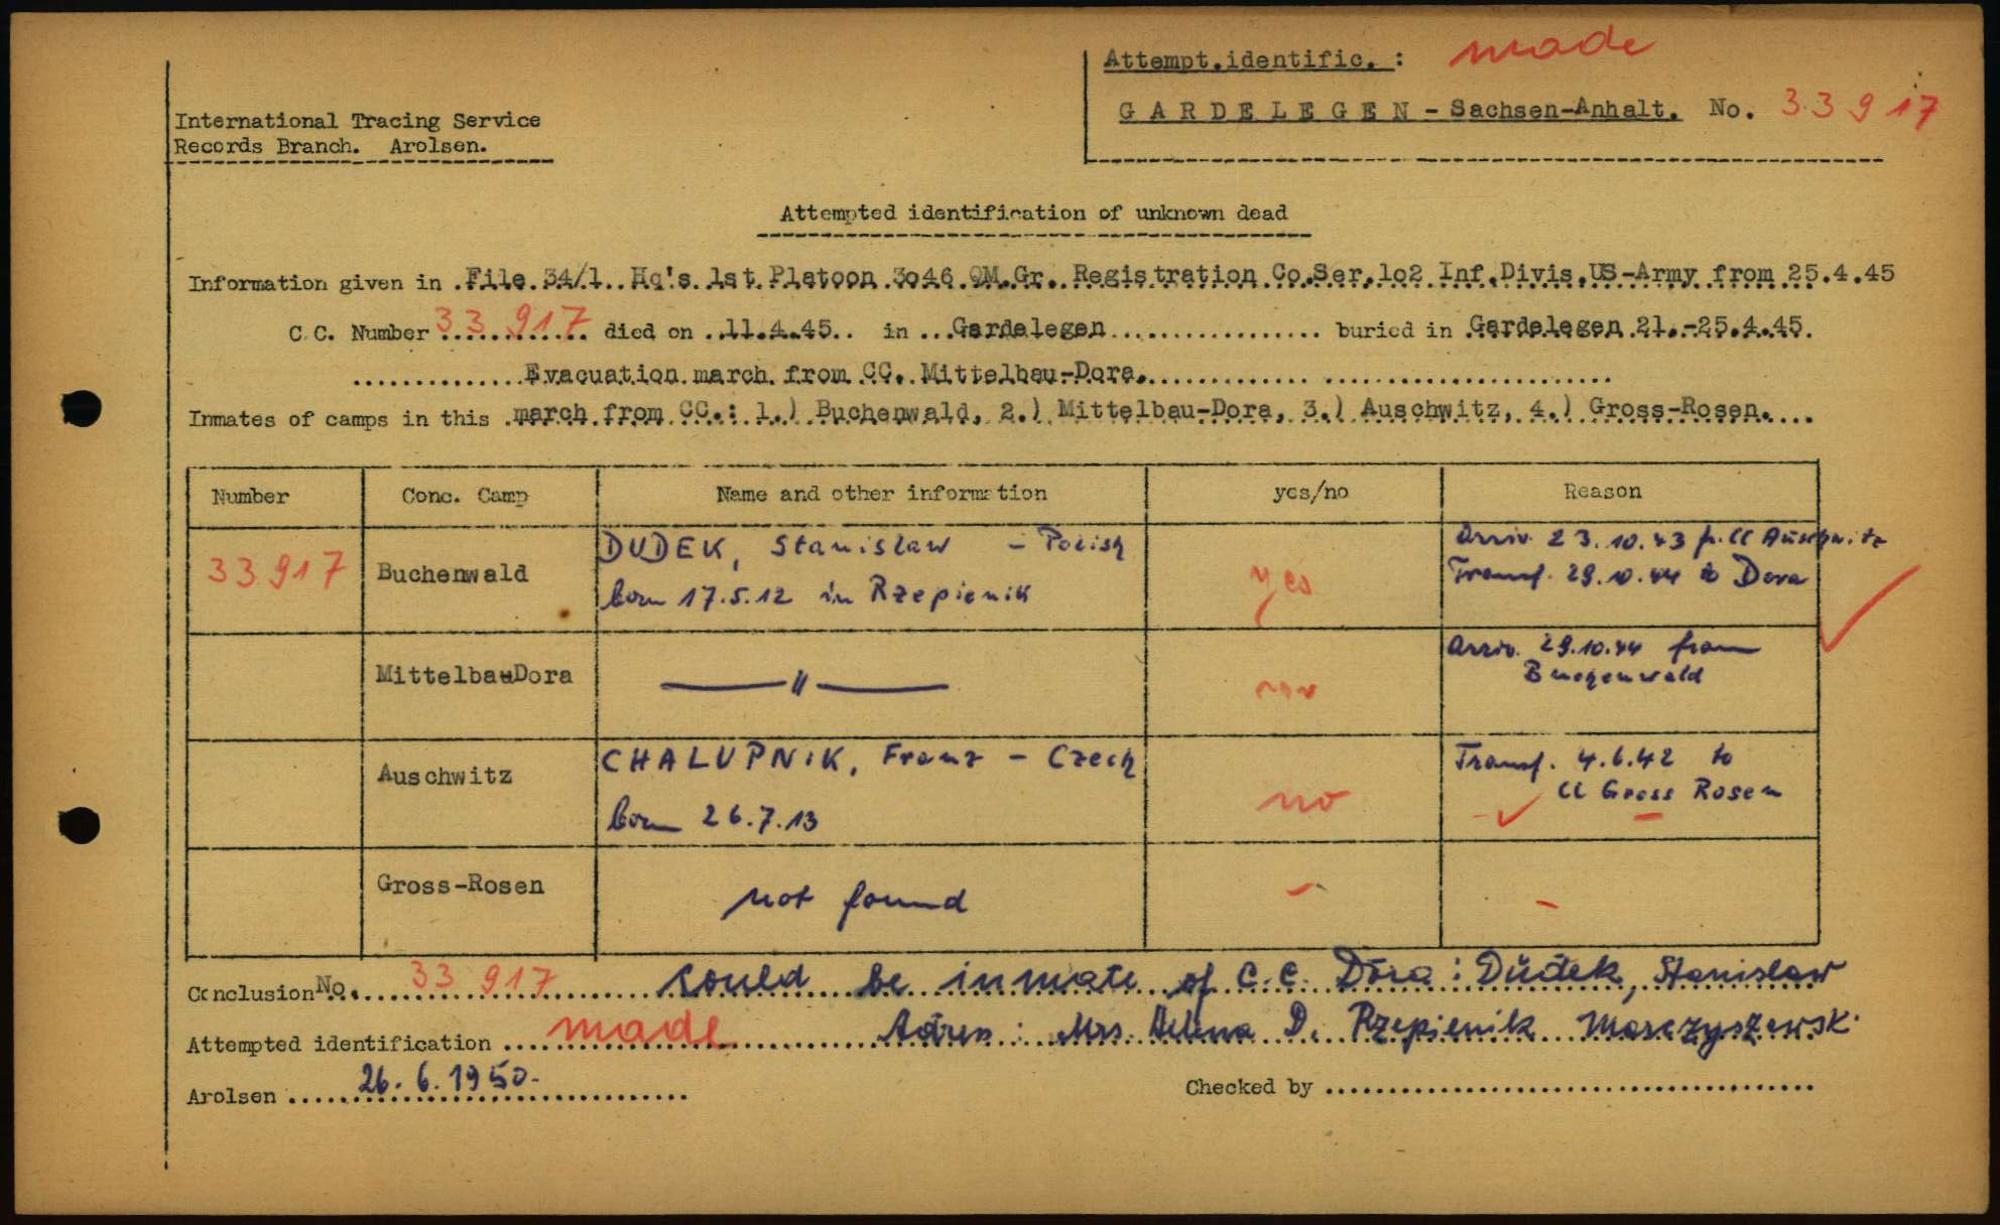 Attempt.identific. : made
GARDELEGEN - Sachsen-Anhalt. No. 33917
International Tracing Service
Records Branch. Arolsen.
Attempted identification of unknown dead
Information given in .File.34/1..Hq's.1st.Platoon.3o46.QM.Gr..Registration.Co.Ser.1o2.Inf.Divis.US-Army from 25.4.45
C.C. Number 33 917 died on ..11.4.45.. in ...Gardelegen................ buried in .Gardelegen.21.-25.4.45.
.............Evacuation.march.from.CC..Mittelbau-Dora.............. ......................
Inmates of camps in this .march.from.CC.: 1.) Buchenwald, 2.) Mittelbau-Dora, 3.) Auschwitz, 4.) Gross-Rosen....
Number Conc. Camp Name and other information yes/no Reason
33917 Buchenwald DUDEK, Stanislaw - Polish yes Arriv. 23.10.43 fr. CC Auschwitz
born 17.5.12 in Rzepienik Transf. 29.10.44 to Dora
MittelbauDora —— " —— Arriv. 29.10.44 from
Buchenwald
Auschwitz CHALUPNIK, Franz - Czech no Transf. 4.6.42 to
born 26.7.13 CC Gross Rosen
Gross-Rosen not found - -
Conclusion No. 33 917 could be inmate of C.C. Dora: Dudek, Stanislaw
Attempted identification made Adress: Mrs. Helena D. Rzepienik
Arolsen 26.6.1950. Checked by ..............................